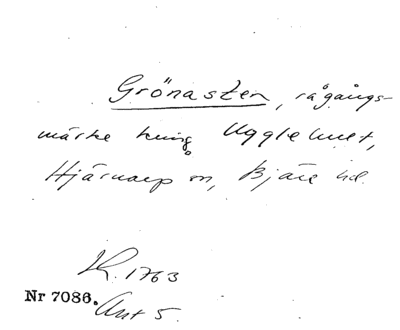 Grönasten, rågångs-
märke kring Ugglehult,
Hjärnarp sn, Bjäre hd.
LK. 1763
Nr 7086. Akt 5.